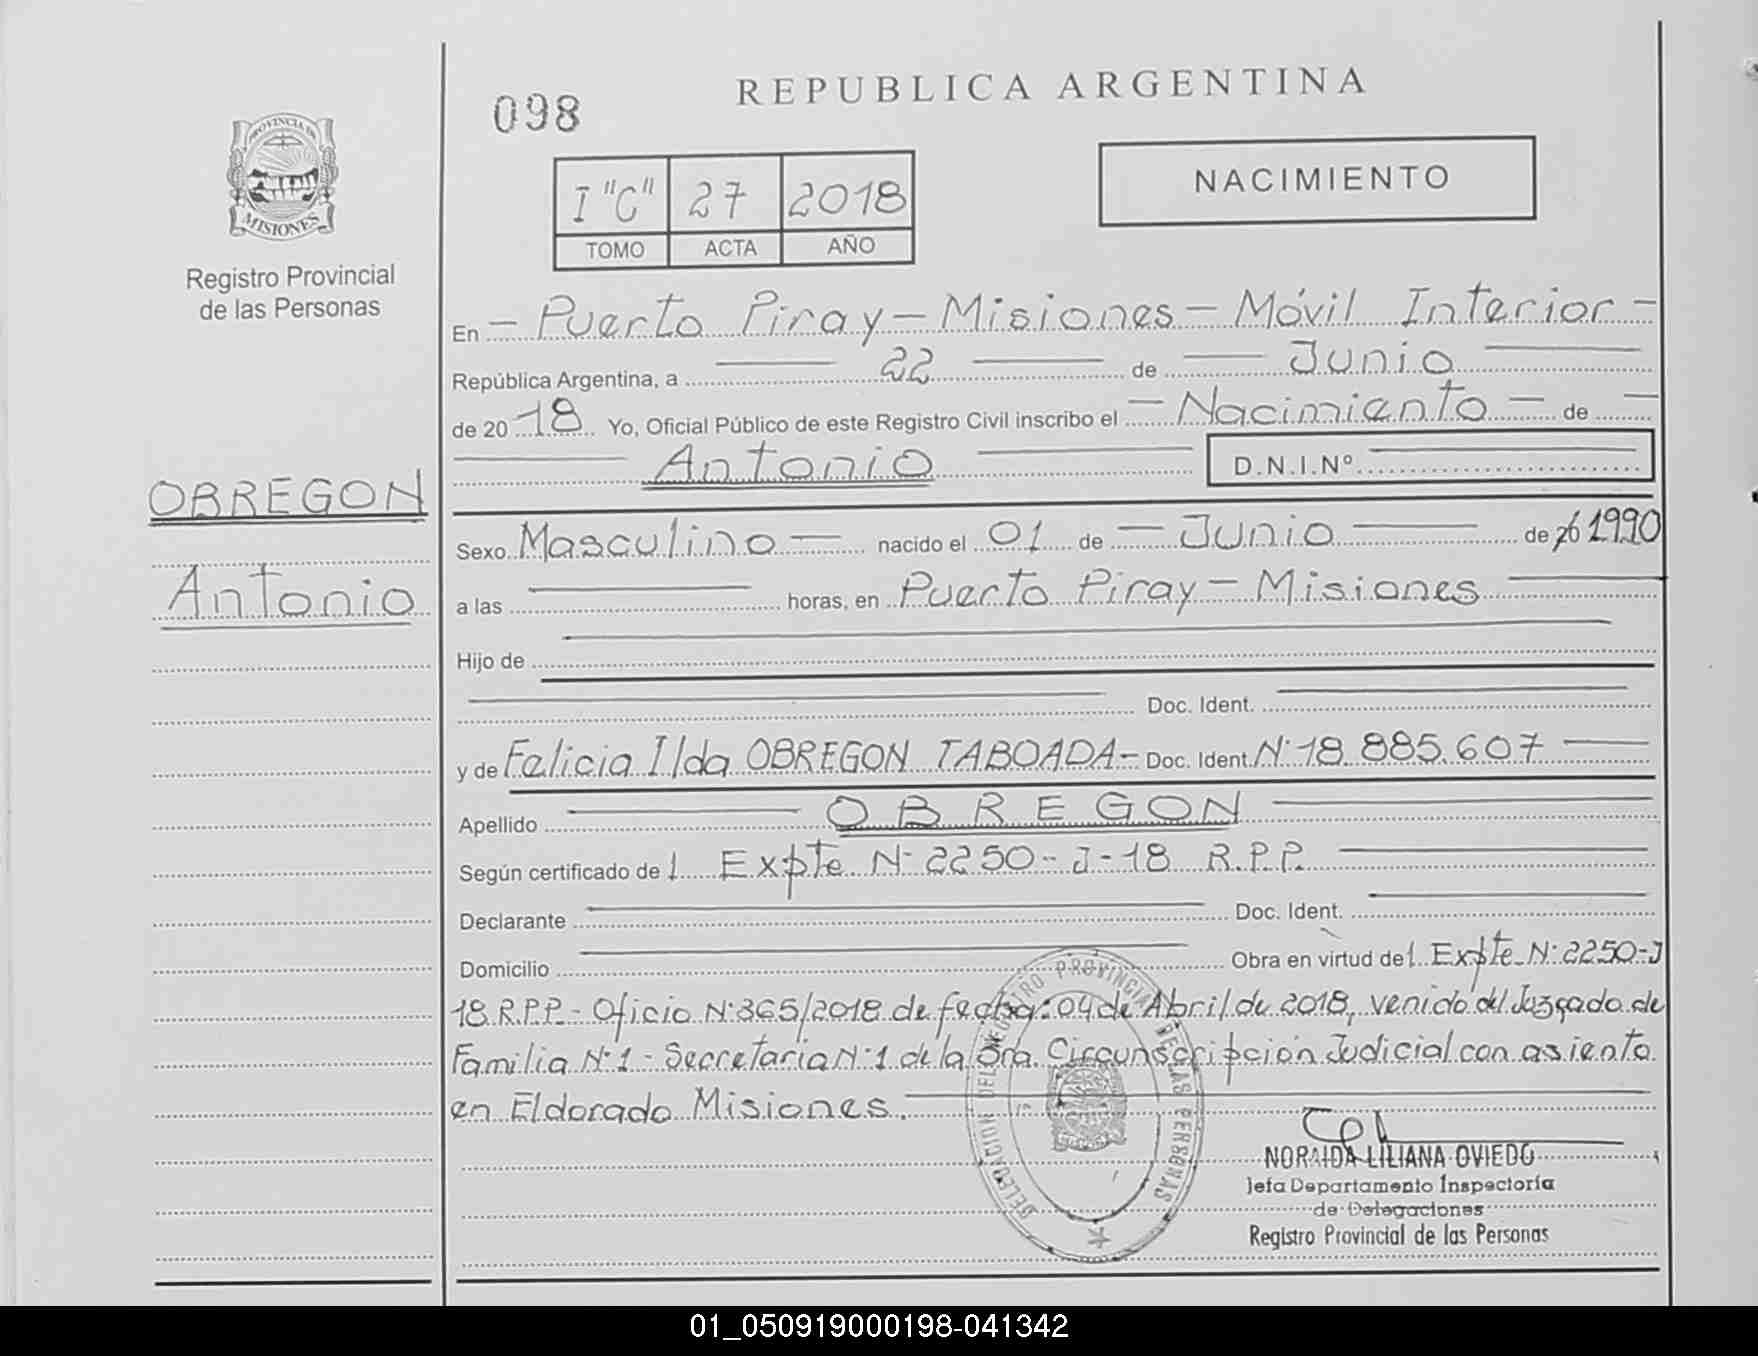 REPUBLICA ARGENTINA
098
PROVINCIA DE
MISIONES
Registro Provincial
de las Personas
I "C" 27 2018
TOMO ACTA AÑO
NACIMIENTO
En - Puerto Piray - Misiones - Móvil Interior -
República Argentina, a 22 de Junio
de 2018 Yo, Oficial Público de este Registro Civil inscribo el - Nacimiento - de
Antonio D.N.I.Nº
OBREGON
Antonio
Sexo Masculino - nacido el 01 de - Junio de 20 1990
a las horas, en Puerto Piray - Misiones
Hijo de
Doc. Ident.
y de Felicia Ilda OBREGON TABOADA - Doc. Ident. Nº 18.885.607
Apellido OBREGON
Según certificado de l Expte Nº 2250-J-18 R.P.P.
Declarante Doc. Ident.
Domicilio Obra en virtud del Expte Nº 2250-J
18 R.P.P. - Oficio Nº 365/2018 de fecha: 04 de Abril de 2018, venido del Juzgado de
Familia Nº 1 - Secretaria Nº 1 de la 3ra. Circunscripción Judicial con asiento
en Eldorado Misiones.
DELEGACION DEL REGISTRO PROVINCIAL DE LAS PERSONAS
NORAIDA LILIANA OVIEDO
Jefa Departamento Inspectoría
de Delegaciones
Registro Provincial de las Personas
01_050919000198-041342